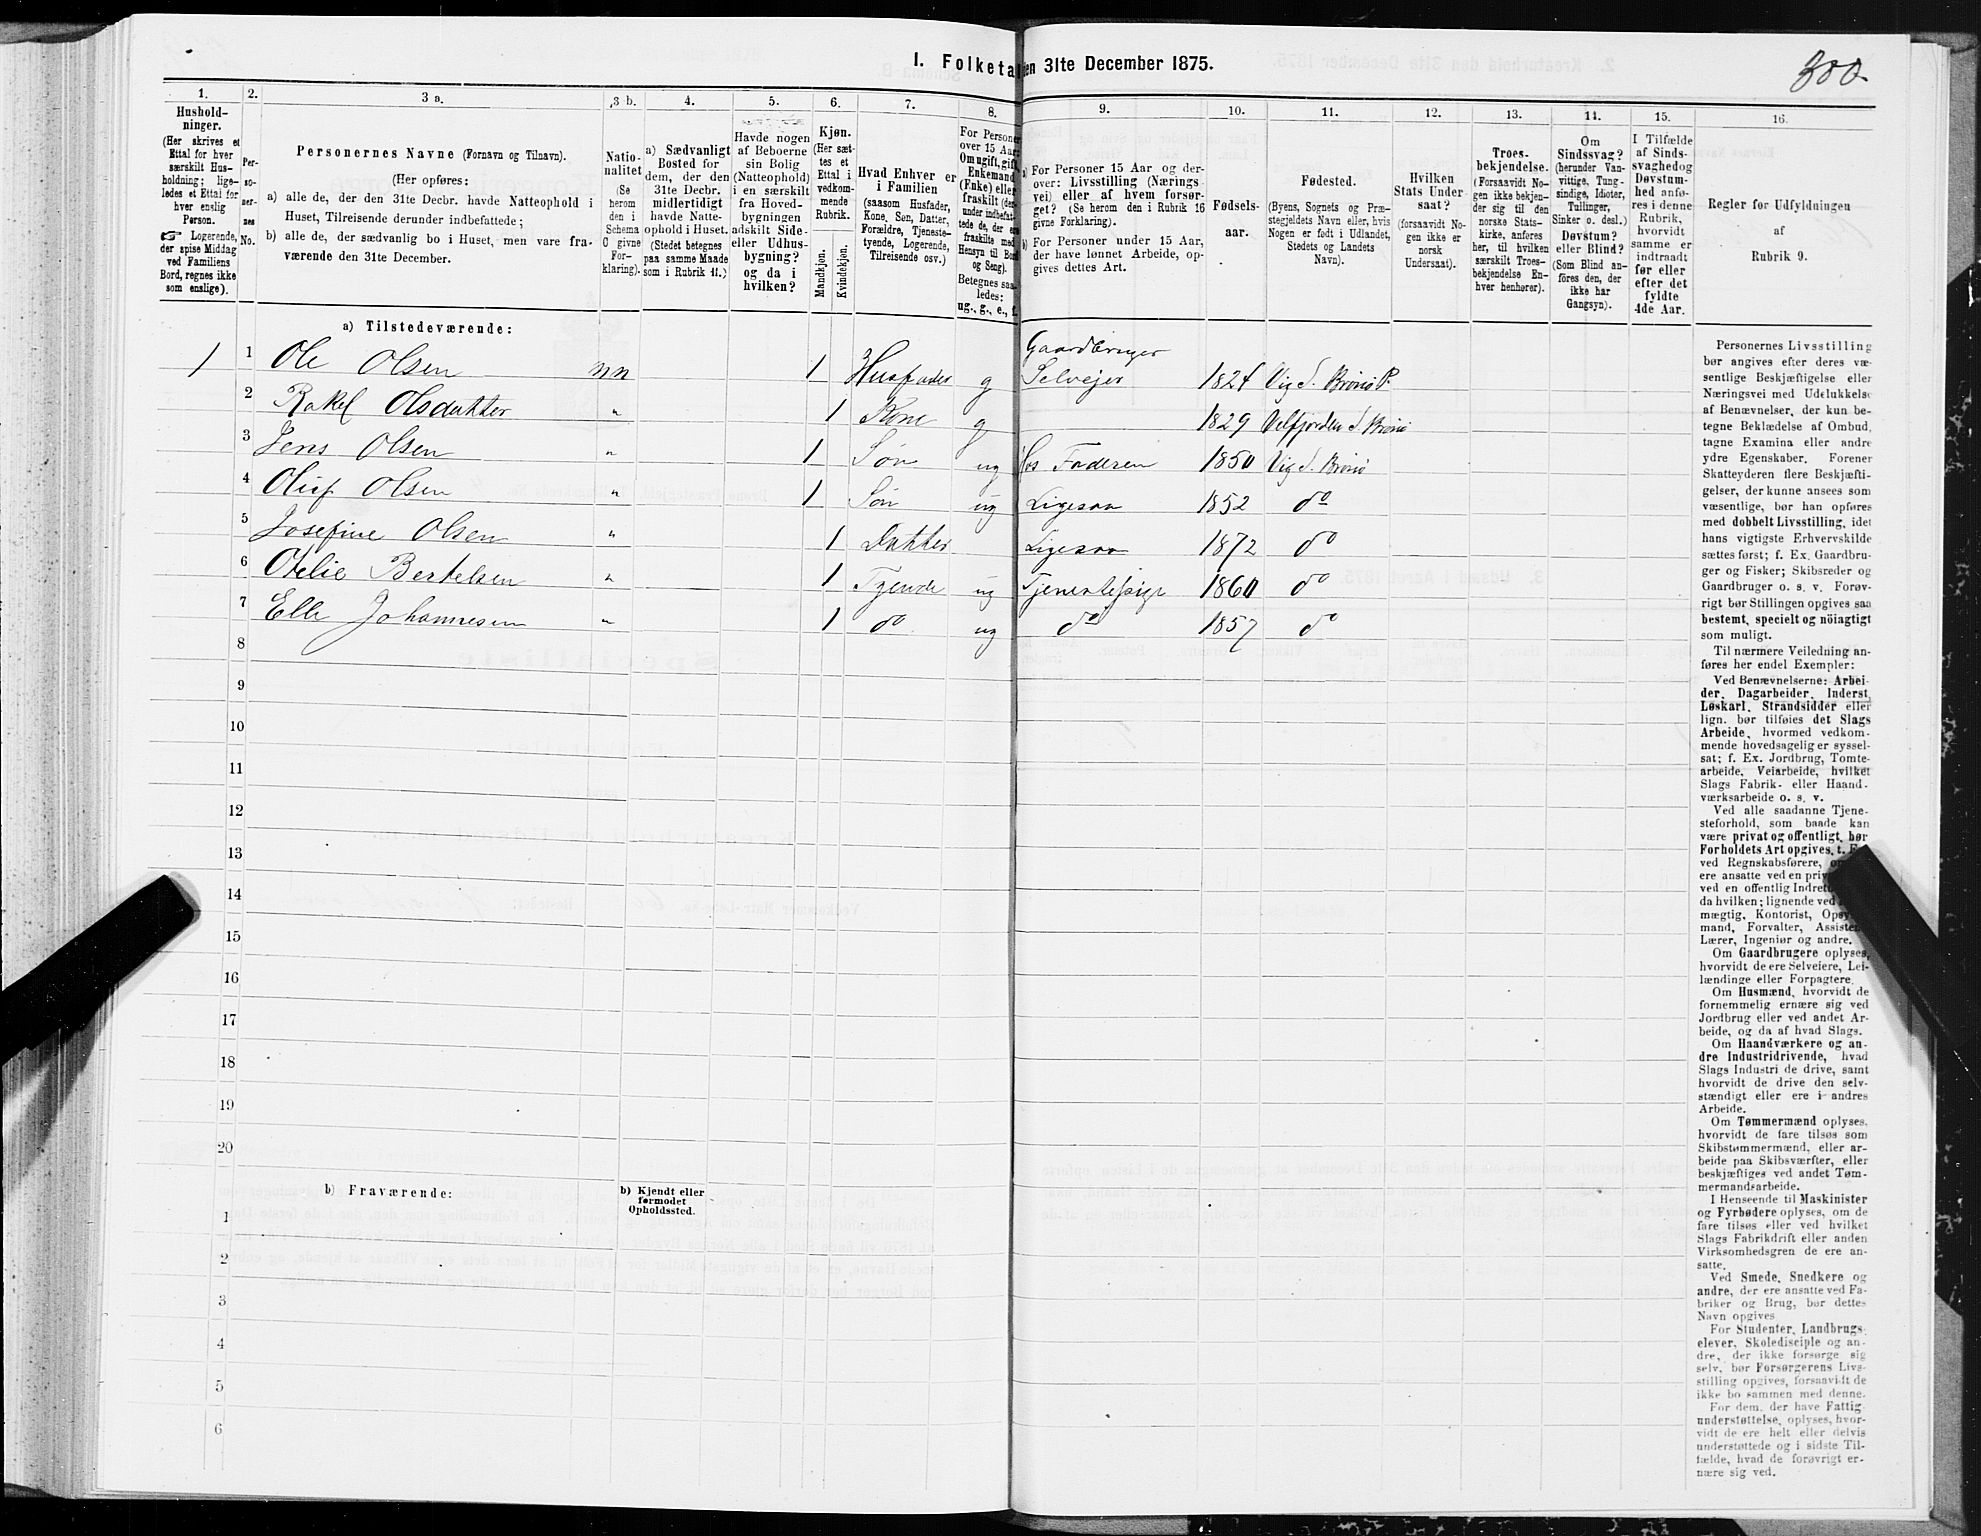 1. Folketa
en 31te December 1875.
300.
1.
2.
3 a.
3 b.
4.
5.
6.
7.
8.
9.
10.
11.
12.
13.
14.
15.
16.
Hushold-
ninger.
(Her skrives et
Ettal for hver
særskilt Hus-
holdning; lige-
ledes et Ettal for
hver enslig
Person.
☞ Logerende,
der spise Middag
ved Familiens
Bord, regnes ikke
som enslige).
Per-
so-
ner-
nes
No.
Personernes Navne (Fornavn og Tilnavn).
(Her opføres:
a) alle de, der den 31te Decbr. havde Natteophold i
Huset, Tilreisende derunder indbefattede;
b) alle de, der sædvanlig bo i Huset, men vare fra-
værende den 31te December.
Natio-
nalitet
(Se
herom
den i
Schema
C givne
For-
klaring).
a) Sædvanligt
Bosted for
dem, der den
31te Decbr.
midlertidigt
havde Natte-
ophold i Huset.
(Stedet betegnes
paa samme Maade
som i Rubrik 11.)
Havde nogen
af Beboerne
sin Bolig
(Natteophold)
i en særskilt
fra Hoved-
bygningen
adskilt Side-
eller Udhus-
bygning?
og da i
hvilken?
Kjøn.
(Her sæt-
tes et
Ettal i
vedkom-
mende
Rubrik.
Mandkjøn.
Kvindekjøn.
Hvad Enhver er
i Familien
(saasom Husfader,
Kone, Søn, Datter,
Forældre, Tjeneste-
tyende, Logerende,
Tilreisende osv.)
For Persone
over 15 Aar:
Om ugift, gift,
Enkemand
(Enke) eller
fraskilt (der-
under indbefat-
tede de, der er
fraskilte med
Hensyn til Bord
og Seng).
Betegnes saa-
ledes:
ug., g., e., f.
a) For Personer 15 Aar og der-
over: Livsstilling (Nærings
vei) eller af hvem forsør-
get? (Se herom den i Rubrik 16
givne Forklaring).
b) For Personer under 15 Aar,
der have lønnet Arbeide, op-
gives dettes Art.
Fødsels-
aar.
Fødested.
(Byens, Sognets og Præ-
stegjeldets Navn eller, hvis
Nogen er født i Udlandet,
Stedets og Landets
Navn).
Hvilken
Stats Under-
saat?
(forsaavidt No-
gen ikke er
norsk
Undersaat).
Troes-
bekjendelse.
(Forsaavidt No-
gen ikke bekjen-
der sig til den
norske Stats-
kirke, anføres
her, til hvilken
særskilt Troes-
bekjendelse En-
hver henhører).
Om
Sindssvag?
(herunder Van-
vittige, Tung-
sindige, Idioter,
Tullinger,
Sinker o. desl.)
Døvstum?
eller Blind?
(Som Blind an-
føres den, der
ikke har
Gangsyn).
I Tilfælde
af Sinds-
svaghed og
Døvstum-
hed anfø-
res i denne
Rubrik,
hvorvidt
samme er
indtraadt
før eller
efter det
fyldte
4de Aar.
Regler for Udfyldningen
af
Rubrik 9.
a) Tilstedeværende:
1 1 Ole Olsen nn 1 Husfader g Gaardbruger
Selvejer 1824 Vig S. Brønø P.
2 Rakel Olsdatter " 1 Kone g 1829 Velfjorden S. Brønø
3 Jens Olsen " 1 Søn ug hos Faderen 1850 Vig S. Brønø
4 Oluf Olsen " 1 Søn ug Ligesaa 1852 do
5 Josefine Olsen " 1 Datter Ligesaa 1872 do
6 Otelie Bertelsen " 1 Tyende ug Tjenestepige 1860 do
7 Elle Johannesen " 1 do ug do 1857 do
8
9
10
11
12
13
14
15
16
17
18
19
20
b) Fraværende:
b) Kjendt eller
formodet
Opholdssted.
1
2
3
4
5
6
Personernes Livsstilling
bør angives efter deres væ-
sentlige Beskjæftigelse eller
Næringsvei med Udelukkelse
af Benævnelser, der kun be-
tegne Beklædelse af Ombud,
tagne Examina eller andre
ydre Egenskaber. Forener
Skatteyderen flere Beskjæfti-
gelser, der kunne ansees som
væsentlige, bør han opføres
med dobbelt Livsstilling, idet
hans vigtigste Erhvervskilde
sættes først; f. Ex. Gaardbru-
ger og Fisker; Skibsreder og
Gaardbruger o. s. v. Forøv-
rigt bør Stillingen opgives saa
bestemt, specielt og nöiagtigt
som muligt.
Til nærmere Veiledning an-
føres her endel Exempler:
Ved Benævnelserne: Arbei-
der, Dagarbeider, Inderst,
Løskarl, Strandsidder eller
lign. bør tilføies det Slags
Arbeide, hvormed vedkom-
mende hovedsagelig er syssel-
sat; f. Ex. Jordbrug, Tomte-
arbeide, Veiarbeide, hvilket
Slags Fabrik- eller Haand-
værksarbeide o. s. v.
Ved alle saadanne Tjene-
steforhold, som baade kan
være privat og offentligt, bør
Forholdets Art opgives, t. E
ved Regnskabsførere, o
ere ansatte ved en priv
ved en offentlig Indret
da hvilken; lignende ved
mægtig, Kontorist, Opsy
mand, Forvalter, Assisten
Lærer, Ingeniør og andre.
Om Gaardbrugere oplyses,
hvorvidt de ere Selveiere, Lei-
lændinge eller Forpagtere.
Om Husmænd, hvorvidt de
fornemmelig ernære sig ved
Jordbrug eller ved andet Ar-
beide, og da af hvad Slags.
Om Haandværkere og an-
dre Industridrivende, hvad
Slags Industri de drive, samt
hvorvidt de drive den selv-
stændigt eller ere i andres
Arbeide.
Om Tømmermænd oplyses,
hvorvidt de fare tilsøs som
Skibstømmermænd, eller ar-
beide paa Skibsværfter, eller
beskjæftiges ved andet Tøm-
mermandsarbeide.
I Henseende til Maskinister
og Fyrbødere oplyses, om de
fare tilsøs eller ved hvilket
Slags Fabrikdrift eller anden
Virksomhedsgren de ere an-
satte.
Ved Smede, Snedkere og
andre, der ere ansatte ved Fa-
briker og Brug, bør dettes
Navn opgives
For Studenter, Landbrugs-
elever, Skoledisciple og an-
dre, der ikke forsørge sig
selv, bør Forsørgerens Livs-
stilling opgives, forsaavidt de
ikke bo sammen med denne.
For dem, der have Fattig-
understøttelse, oplyses, hvor-
vidt de ere helt eller delvis
understøttede og i sidste Til-
fælde, hvad de forøvrigt er-
nære sig ved.